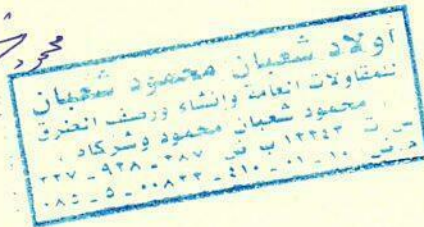 محمود
اولاد شعبان محمود شعبان
للمقاولات العامة وانشاء ورصف الطرق
محمود شعبان محمود وشركاه
س ت ١٢٢٤٣ ب ض ٢٨٧ - ٩٣٨ - ٢٢٧